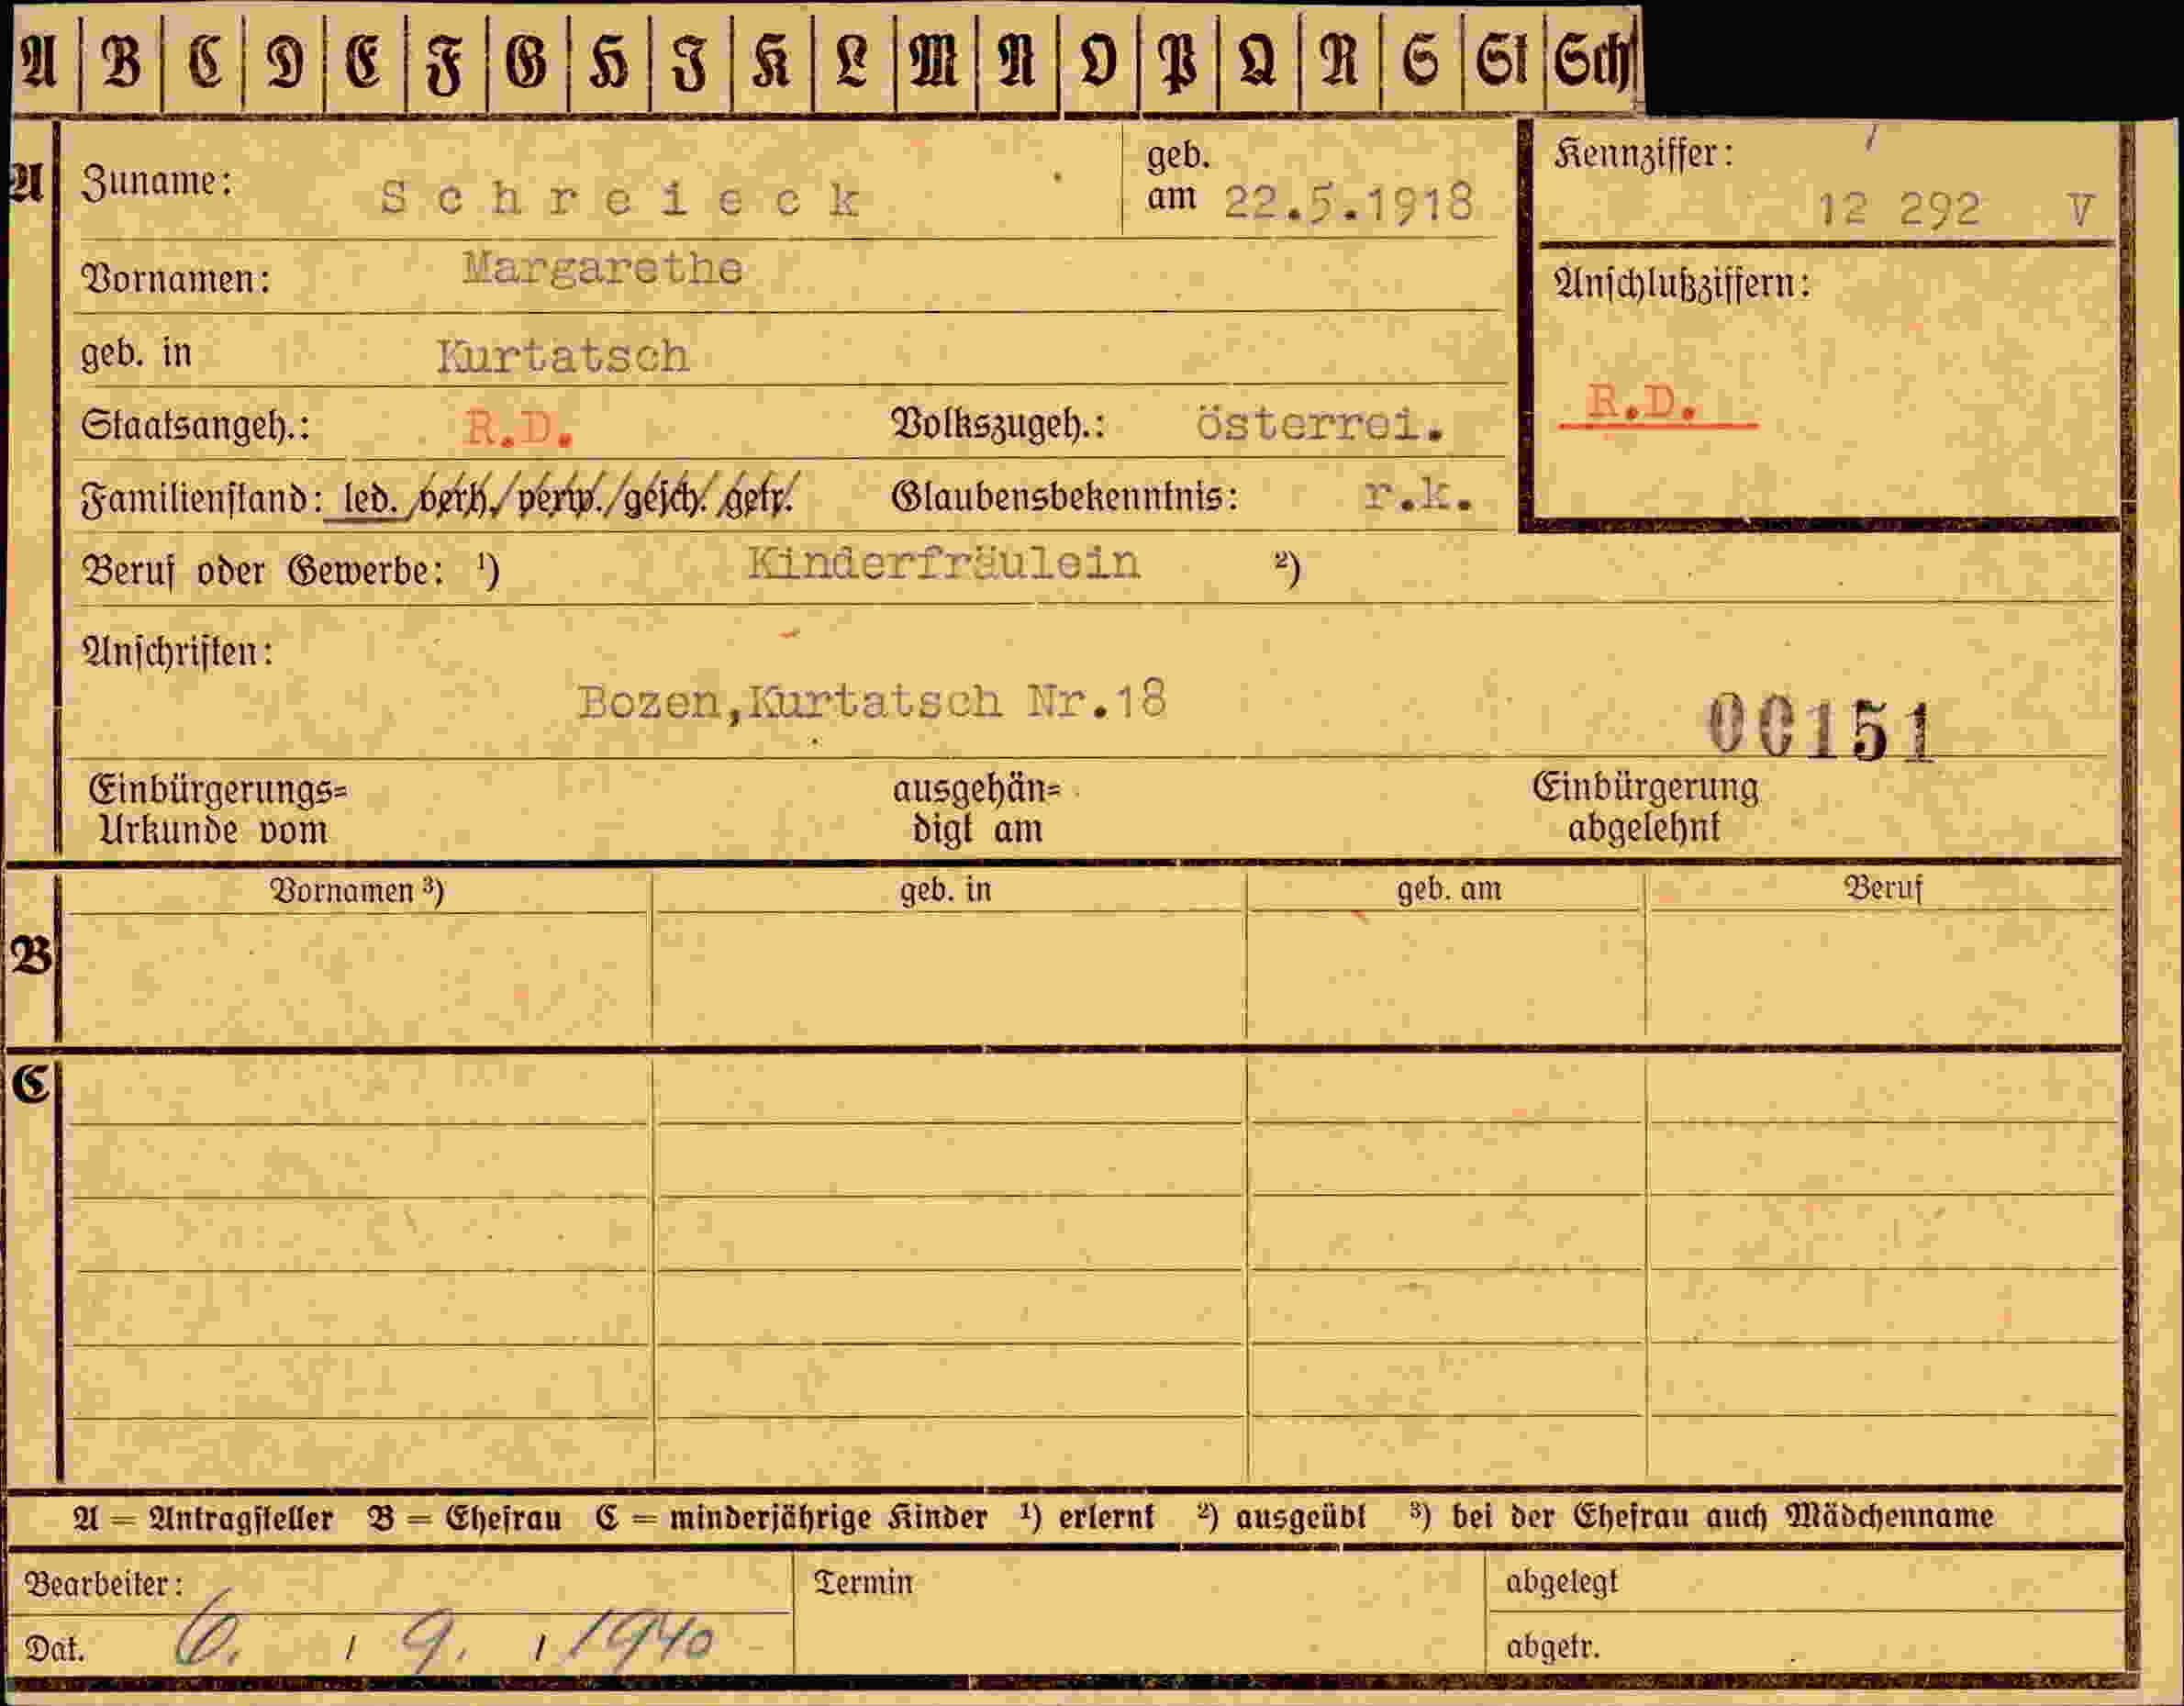 A B C D E F G H I K L M N O P Q R S St Sch
A
Zuname: Schreieck
geb. am 22.5.1918
Kennziffer: 12 292 V
Vornamen: Margarethe
Anschlußziffern:
R.D.
geb. in Kurtatsch
Staatsangeh.: R.D. Volkszugeh.: österrei.
Familienstand: led. /verh./verw./gesch./getr. Glaubensbekenntnis: r.k.
Beruf oder Gewerbe: ¹) Kinderfräulein ²)
Anschriften:
Bozen,Kurtatsch Nr.18
00151
Einbürgerungs= ausgehän= Einbürgerung
Urkunde vom digt am abgelehnt
B
Vornamen ³) geb. in geb. am Beruf
C
A = Antragsteller B = Ehefrau C = minderjährige Kinder ¹) erlernt ²) ausgeübt ³) bei der Ehefrau auch Mädchenname
Bearbeiter: Termin abgelegt
Dat. 6. / 9. / 1940 abgetr.